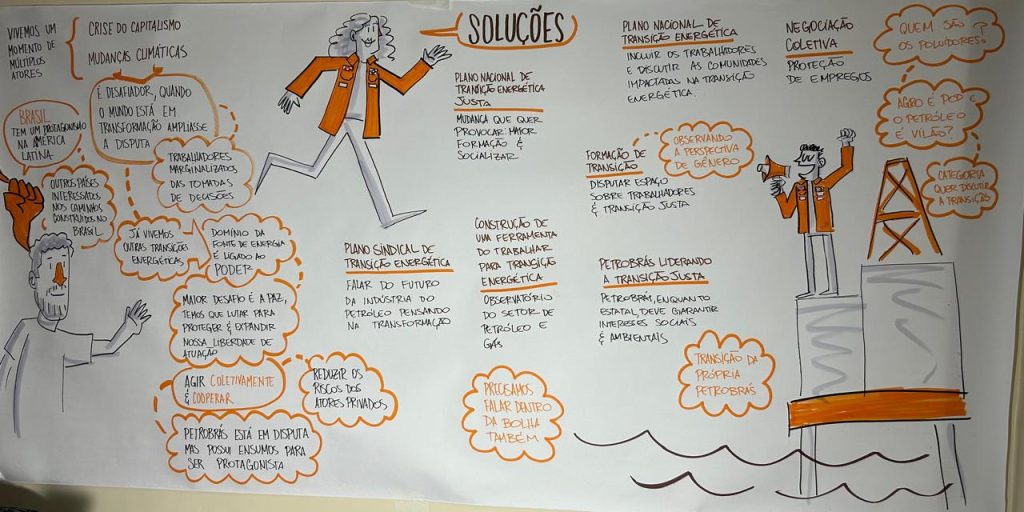 VIVEMOS UM
MOMENTO DE
MÚLTIPLOS
ATORES
CRISE DO CAPITALISMO
MUDANÇAS CLIMÁTICAS
É DESAFIADOR, QUANDO
O MUNDO ESTÁ EM
TRANSFORMAÇÃO AMPLIASSE
A DISPUTA
BRASIL
TEM UM PROTAGONISMO
NA AMÉRICA
LATINA
TRABALHADORES
MARGINALIZADOS
DAS TOMADAS
DE DECISÕES
OUTROS PAÍSES
INTERESSADOS
NOS CAMINHOS
CONSTRUÍDOS NO
BRASIL
JÁ VIVEMOS
OUTRAS TRANSIÇÕES
ENERGÉTICAS
DOMÍNIO DA
FONTE DE ENERGIA
É LIGADO AO
PODER
MAIOR DESAFIO É A PAZ,
TEMOS QUE LUTAR PARA
PROTEGER & EXPANDIR
NOSSA LIBERDADE DE
ATUAÇÃO
AGIR COLETIVAMENTE
& COOPERAR
REDUZIR OS
RISCOS DOS
ATORES PRIVADOS
PETROBRÁS ESTÁ EM DISPUTA
MAS POSSUI ENSUMOS PARA
SER PROTAGONISTA
SOLUÇÕES
PLANO NACIONAL DE
TRANSIÇÃO ENERGÉTICA
JUSTA
MUDANÇA QUE QUER
PROVOCAR MAIOR
FORMAÇÃO &
SOCIALIZAR
PLANO SINDICAL DE
TRANSIÇÃO ENERGÉTICA
FALAR DO FUTURO
DA INDÚSTRIA DO
PETRÓLEO PENSANDO
NA TRANSFORMAÇÃO
CONSTRUÇÃO DE
UMA FERRAMENTA
DO TRABALHAR
PARA TRANSIÇÃO
ENERGÉTICA
OBSERVATÓRIO
DO SETOR DE
PETRÓLEO E
GÁS
PRECISAMOS
FALAR DENTRO
DA BOLHA
TAMBÉM
PLANO NACIONAL DE
TRANSIÇÃO ENERGÉTICA
INCLUIR OS TRABALHADORES
E DISCUTIR AS COMUNIDADES
IMPACTADAS NA TRANSIÇÃO
ENERGÉTICA.
FORMAÇÃO DE
TRANSIÇÃO
DISPUTAR ESPAÇO
SOBRE TRABALHADORES
& TRANSIÇÃO JUSTA
OBSERVANDO
A PERSPECTIVA
DE GÊNERO
PETROBRÁS LIDERANDO
A TRANSIÇÃO JUSTA
PETROBRÁS, ENQUANTO
ESTATAL, DEVE GARANTIR
INTERESSES SOCIAIS
& AMBIENTAIS
TRANSIÇÃO DA
PRÓPRIA
PETROBRÁS
NEGOCIAÇÃO
COLETIVA
PROTEÇÃO
DE EMPREGOS
QUEM SÃO
OS POLUIDORES?
AGRO É POP E
O PETRÓLEO
É VILÃO?
CATEGORIA
QUER DISCUTIR
A TRANSIÇÃO